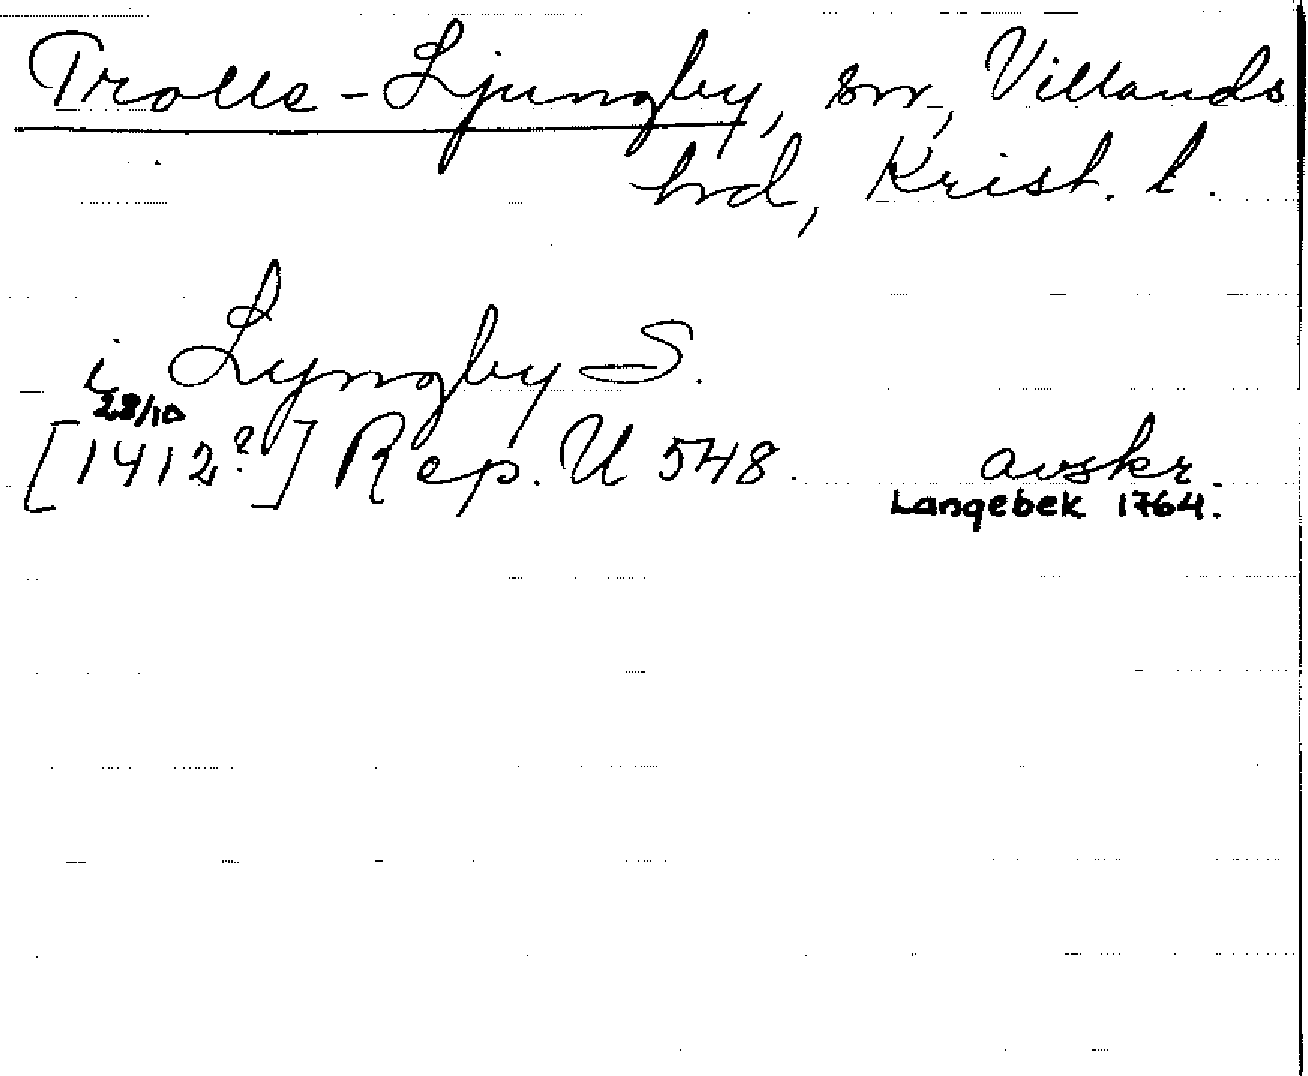 Trolle-Ljungby, sn, Villands
hd, Krist. l.
i Lyngby S.
28/10
[1412?] Rep. U 548. avskr.
Langebek 1764.